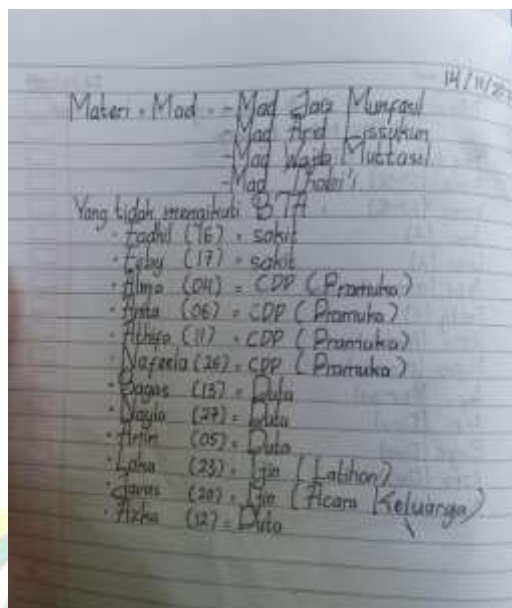 14/11/20
Materi = Mad = - Mad Jaiz Munfasil
- Mad Arid Lissukun
- Mad Wajib Muttasil
- Mad Thobi'i
Yang tidak mengikuti BTA :
• Fadhil (16) = sakit
• Feby (17) = sakit
• Alma (04) = CDP (Pramuka)
• Anta (06) = CDP (Pramuka)
• Athifa (11) = CDP (Pramuka)
• Nafeela (26) = CDP (Pramuka)
• Bagas (13) = Duta
• Nayla (27) = Duta
• (05) = Duta
• (23) = Ijin (Latihan)
• (20) = Ijin (Acara Keluarga)
• Azka (12) = Duta